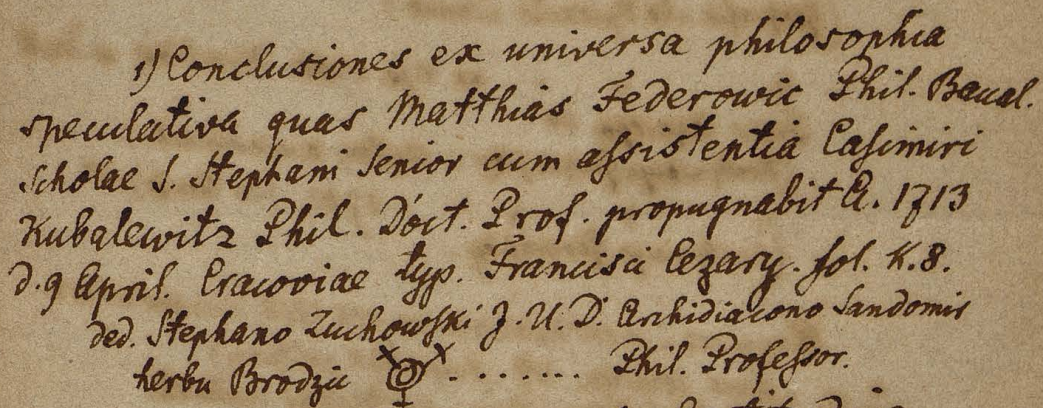 1) Conclusiones ex universa philosophia
speculativa quas Matthias Federowic Phil. Bacal.
Scholae S. Stephani Senior cum assistentia Casimiri
Kubalewitz Phil. Doct. Prof. propugnabit A. 1713
d. 9 April. Cracoviae typ. Francisci Cezary. fol. K. 8.
ded. Stephano Zuchowski J. U. D. Archidiacono Sandomir
herbu Brodzic ........ Phil. Professor.